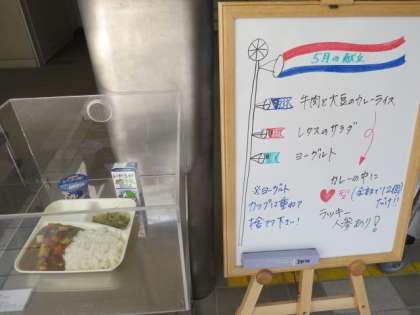 5月の献立
牛肉と大豆のカレーライス
レタスのサラダ
ヨーグルト
カレーの中に
(全校で12個
だけ!!)
ラッキー
人参あり!
※ヨーグルト
カップは重ねて
捨てて下さい!